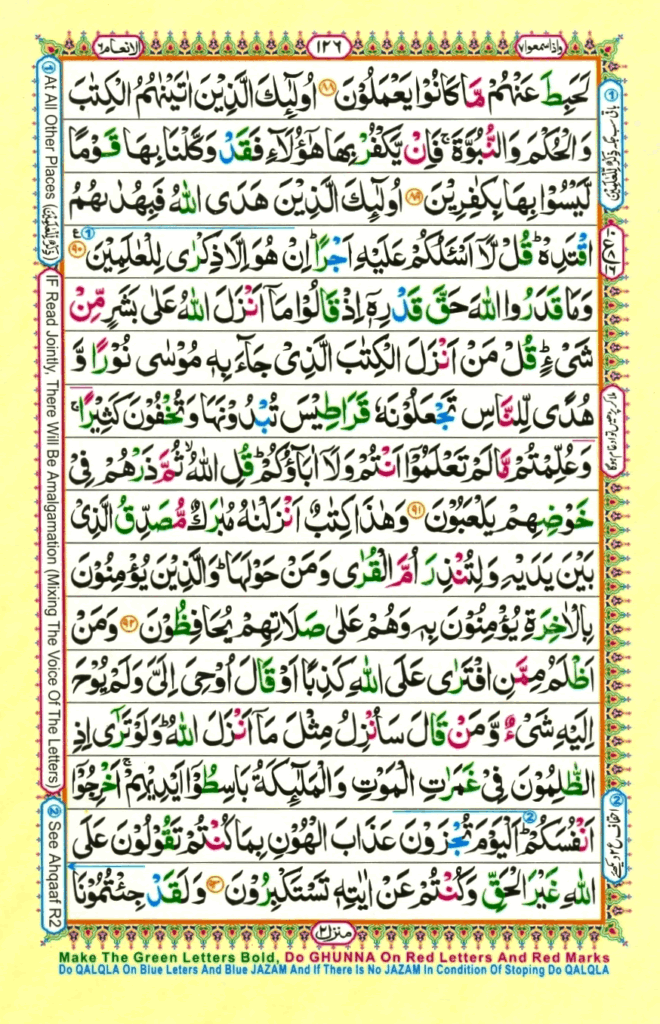 واذاسمعوا٧
١٢٦
الانعام٦
لَحَبِطَ عَنْهُمْ مَّا كَانُوْا يَعْمَلُوْنَ ۝٨٨ اُولٰٓئِكَ الَّذِيْنَ اٰتَيْنٰهُمُ الْكِتٰبَ
وَالْحُكْمَ وَالنُّبُوَّةَ ۚ فَاِنْ يَّكْفُرْ بِهَا هٰٓؤُلَآءِ فَقَدْ وَكَّلْنَا بِهَا قَوْمًا
لَّيْسُوْا بِهَا بِكٰفِرِيْنَ ۝٨٩ اُولٰٓئِكَ الَّذِيْنَ هَدَى اللّٰهُ فَبِهُدٰىهُمُ
اقْتَدِهْ ؕ قُلْ لَّاۤ اَسْـَٔلُكُمْ عَلَيْهِ اَجْرًا ؕ اِنْ هُوَ اِلَّا ذِكْرٰى لِلْعٰلَمِيْنَ ۝٩٠
وَمَا قَدَرُوا اللّٰهَ حَقَّ قَدْرِهٖۤ اِذْ قَالُوْا مَاۤ اَنْزَلَ اللّٰهُ عَلٰى بَشَرٍ مِّنْ
شَىْءٍ ؕ قُلْ مَنْ اَنْزَلَ الْكِتٰبَ الَّذِىْ جَآءَ بِهٖ مُوْسٰى نُوْرًا وَّ
هُدًى لِّلنَّاسِ تَجْعَلُوْنَهٗ قَرَاطِيْسَ تُبْدُوْنَهَا وَتُخْفُوْنَ كَثِيْرًا ۚ
وَعُلِّمْتُمْ مَّا لَمْ تَعْلَمُوْۤا اَنْتُمْ وَلَاۤ اٰبَآؤُكُمْ ؕ قُلِ اللّٰهُ ۙ ثُمَّ ذَرْهُمْ فِىْ
خَوْضِهِمْ يَلْعَبُوْنَ ۝٩١ وَهٰذَا كِتٰبٌ اَنْزَلْنٰهُ مُبٰرَكٌ مُّصَدِّقُ الَّذِىْ
بَيْنَ يَدَيْهِ وَلِتُنْذِرَ اُمَّ الْقُرٰى وَمَنْ حَوْلَهَا ؕ وَالَّذِيْنَ يُؤْمِنُوْنَ
بِالْاٰخِرَةِ يُؤْمِنُوْنَ بِهٖ وَهُمْ عَلٰى صَلَاتِهِمْ يُحَافِظُوْنَ ۝٩٢ وَمَنْ
اَظْلَمُ مِمَّنِ افْتَرٰى عَلَى اللّٰهِ كَذِبًا اَوْ قَالَ اُوْحِىَ اِلَىَّ وَلَمْ يُوْحَ
اِلَيْهِ شَىْءٌ وَّمَنْ قَالَ سَاُنْزِلُ مِثْلَ مَاۤ اَنْزَلَ اللّٰهُ ؕ وَلَوْ تَرٰٓى اِذِ
الظّٰلِمُوْنَ فِىْ غَمَرٰتِ الْمَوْتِ وَالْمَلٰٓئِكَةُ بَاسِطُوْۤا اَيْدِيْهِمْ ۚ اَخْرِجُوْۤا
اَنْفُسَكُمْ ؕ اَلْيَوْمَ تُجْزَوْنَ عَذَابَ الْهُوْنِ بِمَا كُنْتُمْ تَقُوْلُوْنَ عَلَى
اللّٰهِ غَيْرَ الْحَقِّ وَكُنْتُمْ عَنْ اٰيٰتِهٖ تَسْتَكْبِرُوْنَ ۝٩٣ وَلَقَدْ جِئْتُمُوْنَا
منزل٢
① At All Other Places (ذِكْرٌ لِّلْعٰلَمِيْنَ)
IF Read Jointly, There Will Be Amalgamation (Mixing The Voice Of The Letters)
② See Ahqaaf R2
Make The Green Letters Bold, Do GHUNNA On Red Letters And Red Marks
Do QALQLA On Blue Leters And Blue JAZAM And If There Is No JAZAM In Condition Of Stoping Do QALQLA